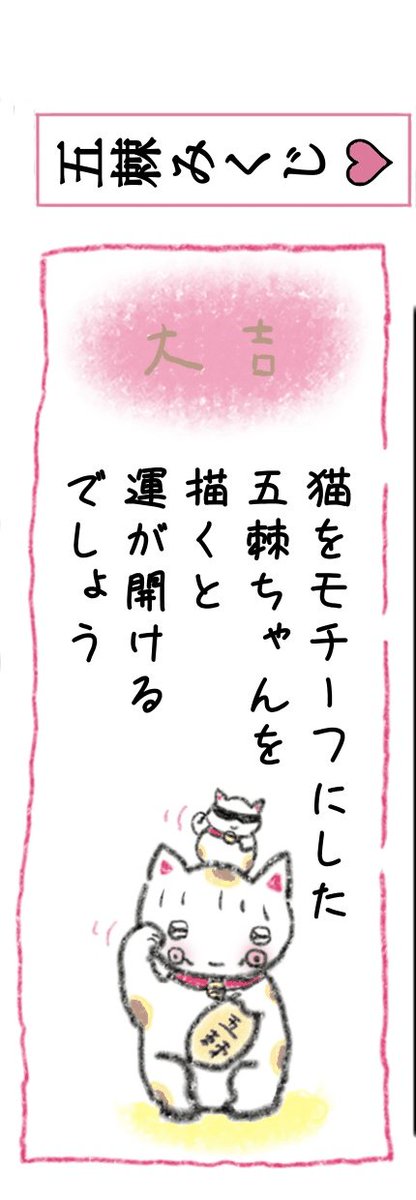 五棘みくじ♥
大吉
猫をモチーフにした
五棘ちゃんを
描くと
運が開ける
でしょう